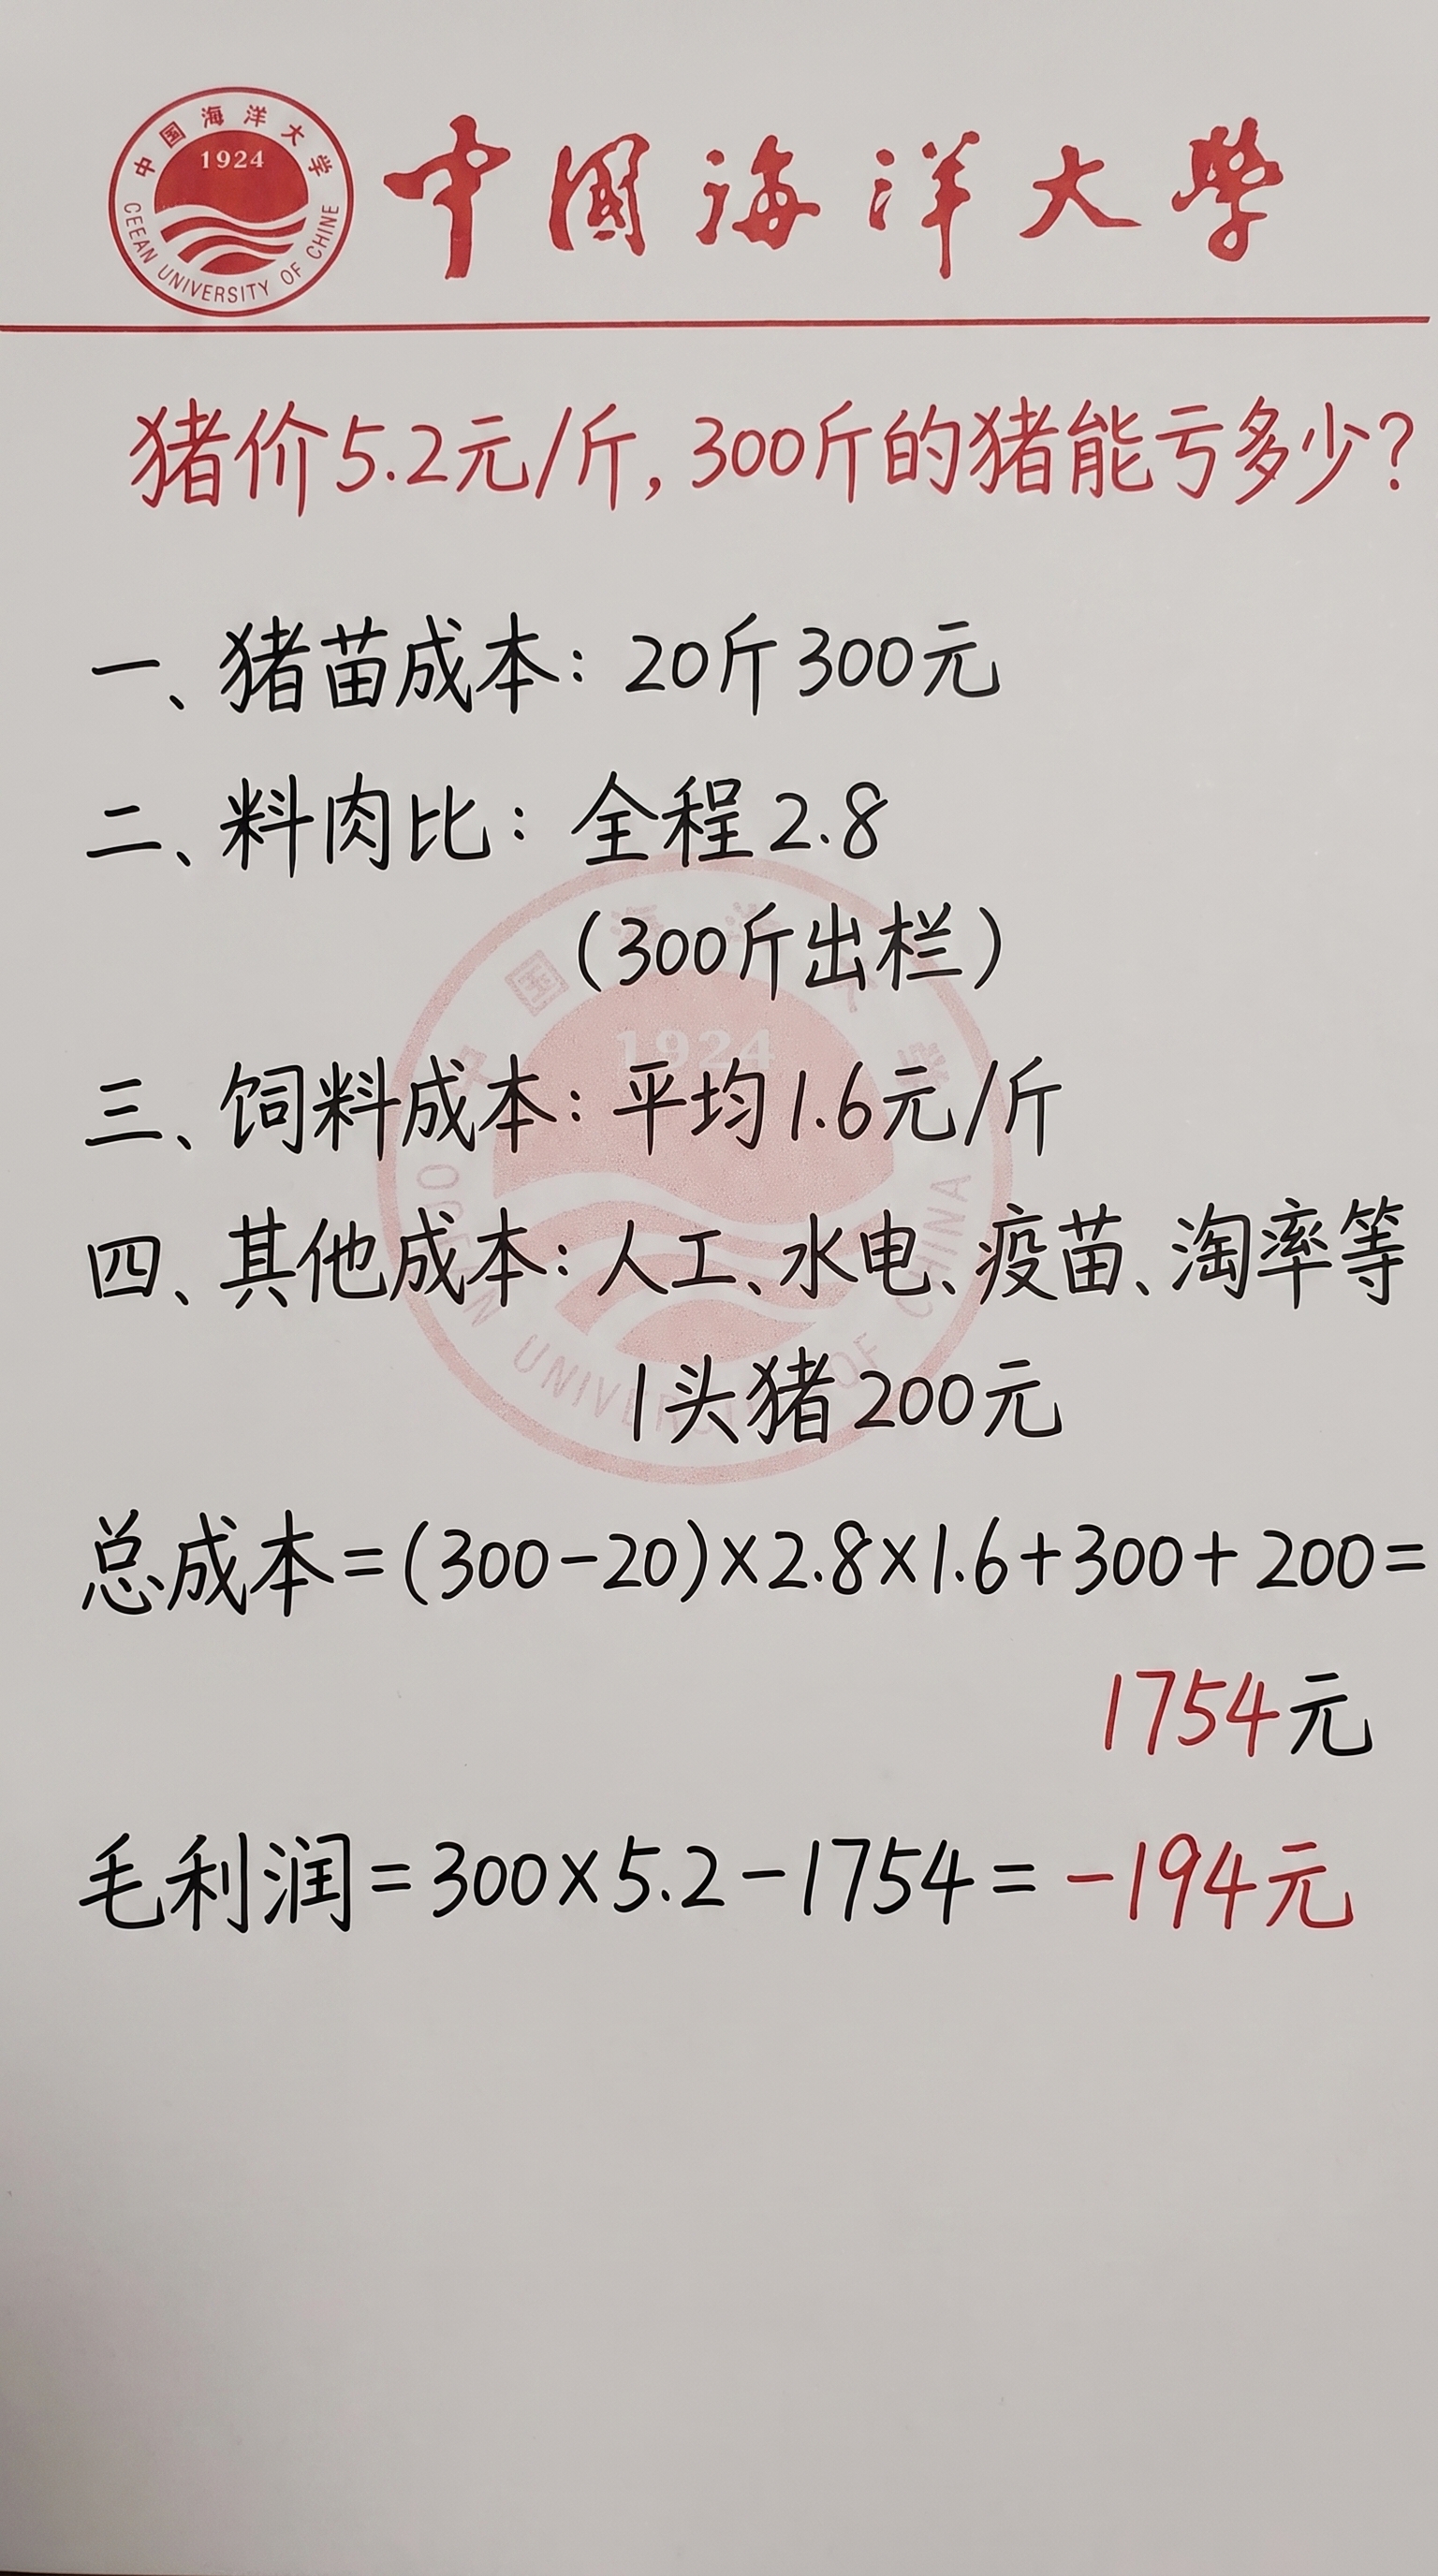 中国海洋大学
1924
CEEAN UNIVERSITY OF CHINE
中國海洋大學
猪价5.2元/斤,300斤的猪能亏多少?
一、猪苗成本:20斤300元
二、料肉比:全程2.8
(300斤出栏)
三、饲料成本:平均1.6元/斤
四、其他成本:人工、水电、疫苗、淘率等
1头猪200元
总成本=(300-20)×2.8×1.6+300+200=
1754元
毛利润=300×5.2-1754=-194元
1924